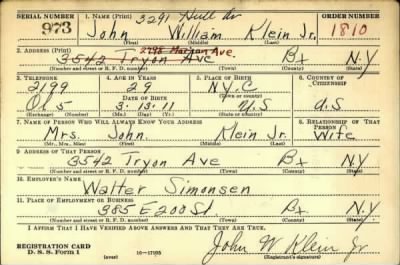 3291 Hull Av
SERIAL NUMBER 1. NAME (Print) ORDER NUMBER
973 John William Klein Jr. 1810
(First) (Middle) (Last)
2798 Marion Ave.
2. ADDRESS (Print)
3542 Tryon Ave Bx N.Y
(Number and street or R. F. D. number) (Town) (County) (State)
3. TELEPHONE 4. AGE IN YEARS 5. PLACE OF BIRTH 6. COUNTRY OF CITIZENSHIP
2199 29 N.Y.C
DATE OF BIRTH (Town or county)
Ol 5 3. 13. 11 U.S U.S
(Exchange) (Number) (Mo.) (Day) (Yr.) (State or country)
7. NAME OF PERSON WHO WILL ALWAYS KNOW YOUR ADDRESS 8. RELATIONSHIP OF THAT PERSON
Mrs. John Klein Jr. Wife
(Mr., Mrs., Miss) (First) (Middle) (Last)
9. ADDRESS OF THAT PERSON
3542 Tryon Ave Bx N.Y
(Number and street or R. F. D. number) (Town) (County) (State)
10. EMPLOYER'S NAME
Walter Simonsen
11. PLACE OF EMPLOYMENT OR BUSINESS
385 E 200 St. Bx N.Y.
(Number and street or R. F. D. number) (Town) (County) (State)
I AFFIRM THAT I HAVE VERIFIED ABOVE ANSWERS AND THAT THEY ARE TRUE.
REGISTRATION CARD
D. S. S. Form 1 (over) 16-17105
John W Klein Jr
(Registrant's signature)